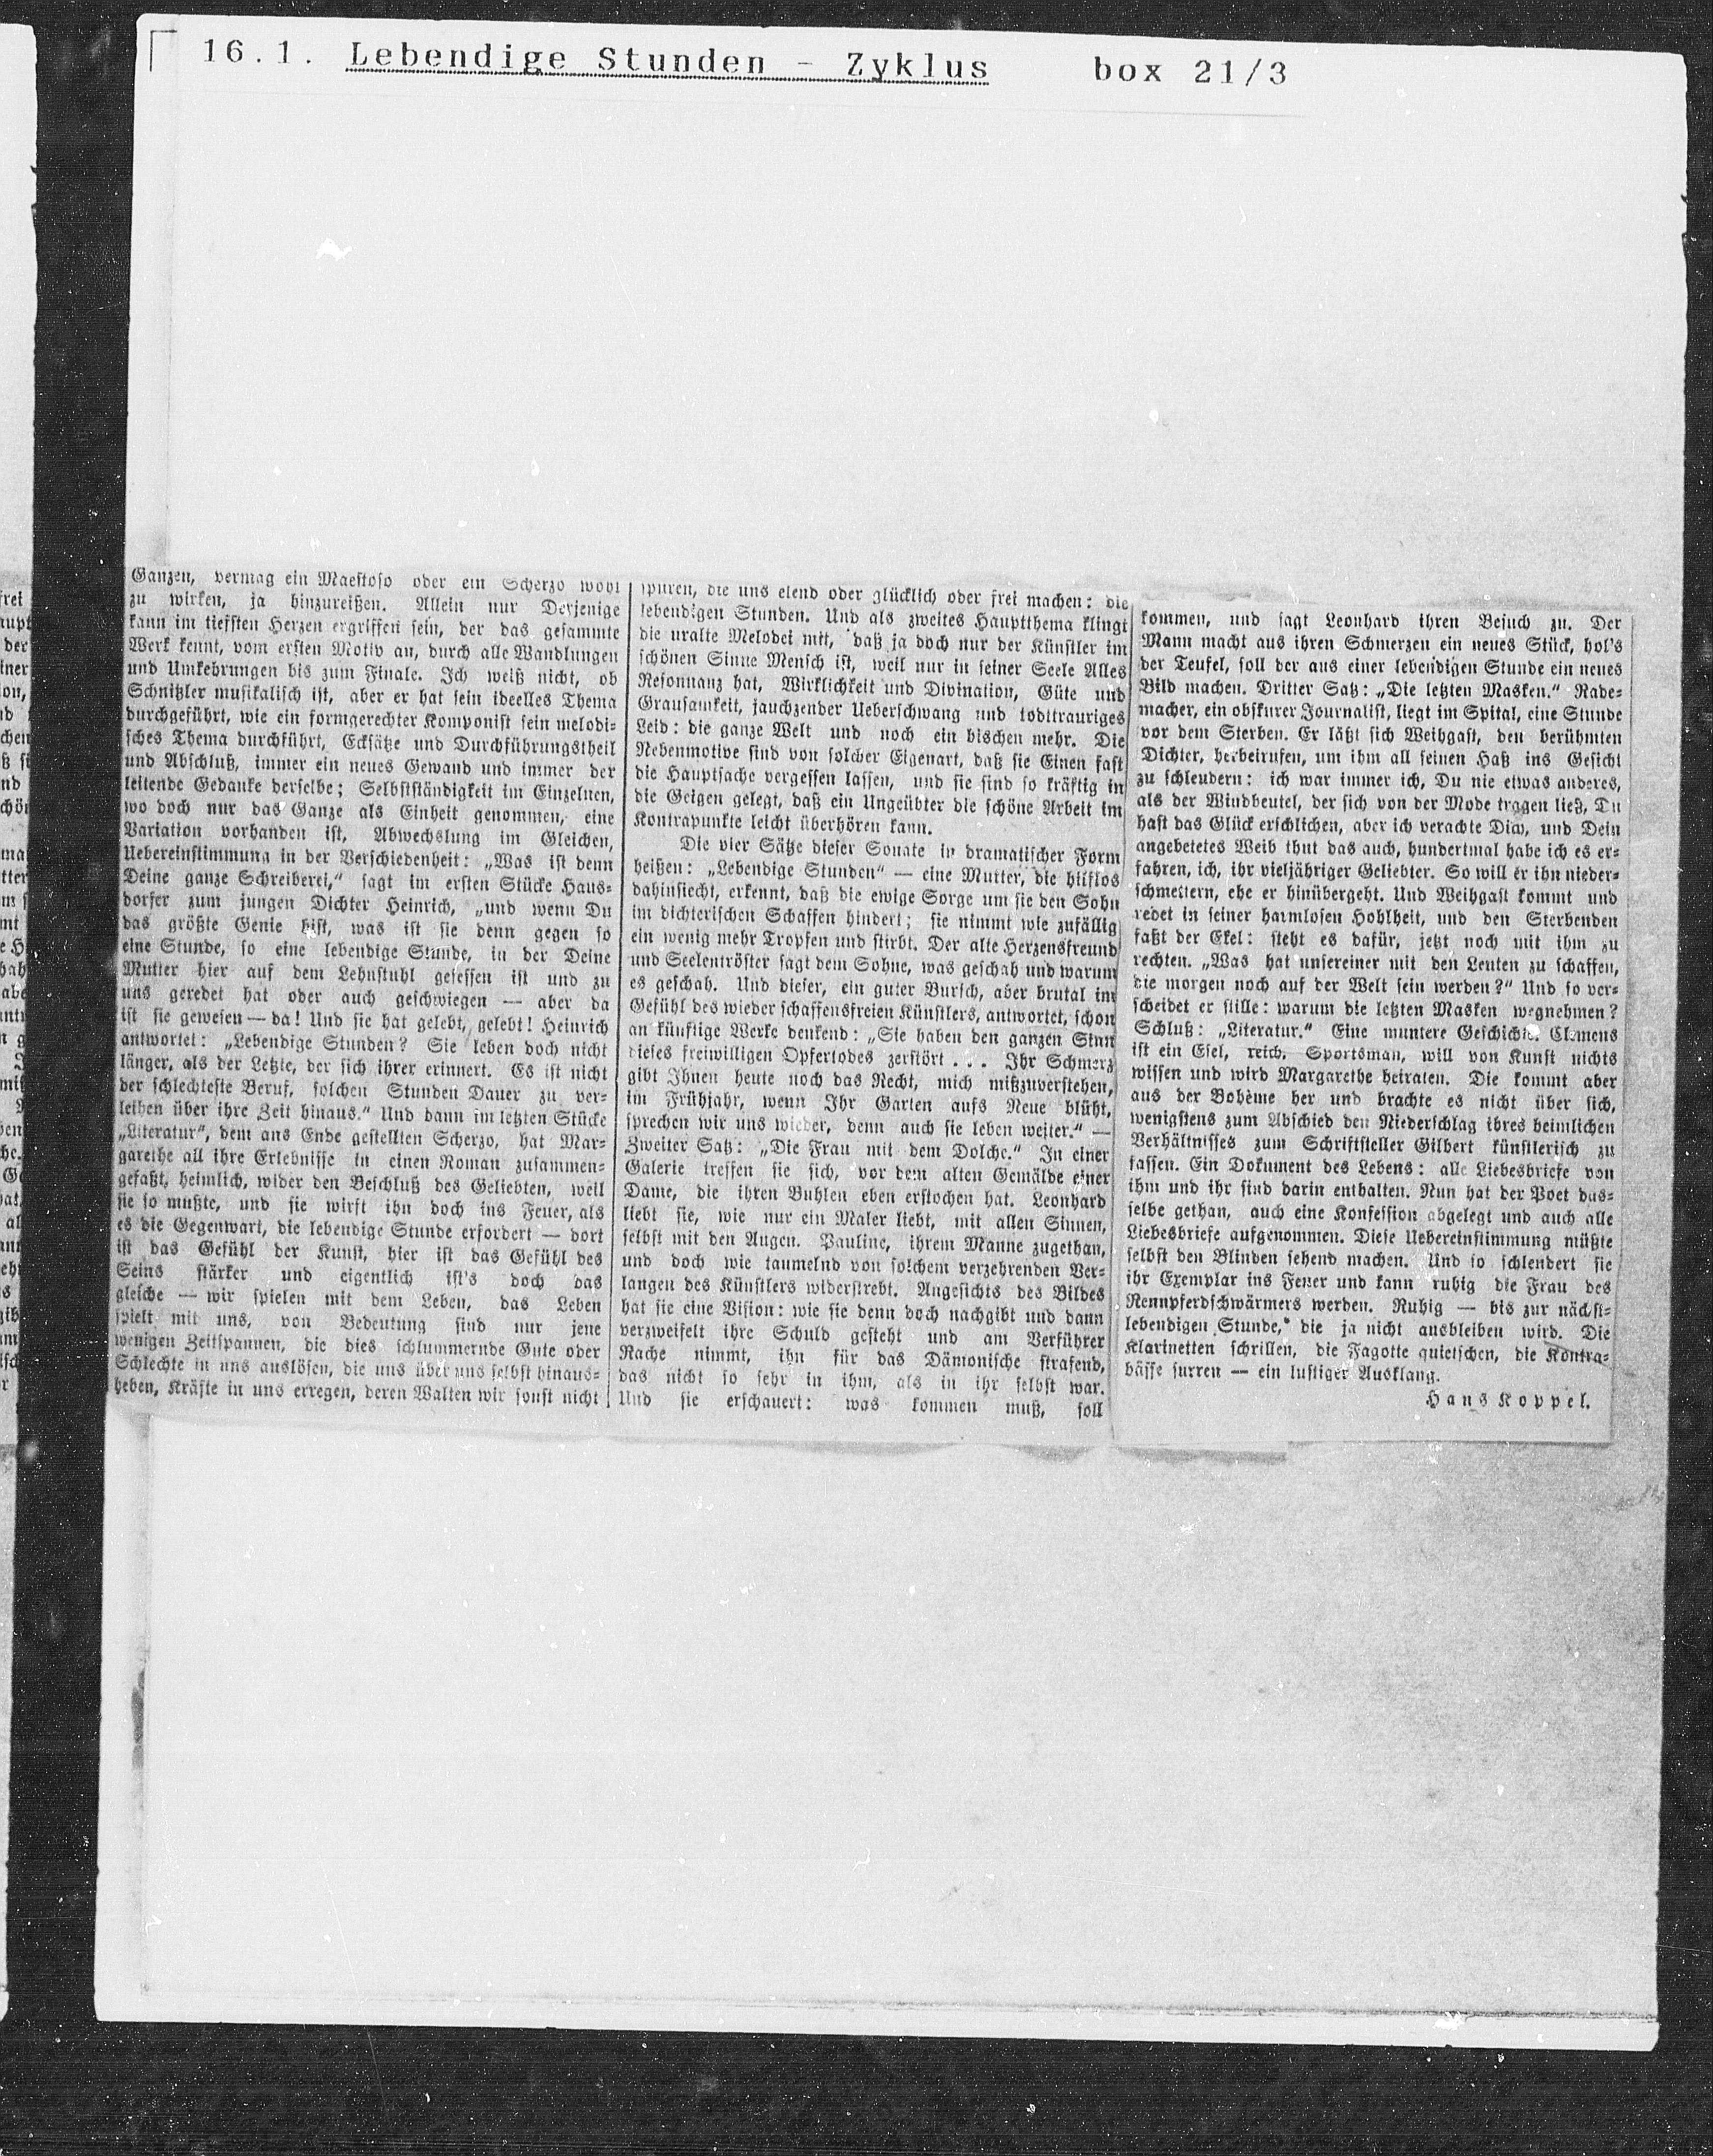 16.1. Lebendige Stunden - Zyklus box 21/3
Ganzen, vermag ein Maestoso oder ein Scherzo wohl
zu wirken, ja hinzureißen. Allein nur Derjenige
kann im tiefsten Herzen ergriffen sein, der das gesammte
Werk kennt, vom ersten Motiv an, durch alle Wandlungen
und Umkehrungen bis zum Finale. Ich weiß nicht, ob
Schnitzler musikalisch ist, aber er hat sein ideelles Thema
durchgeführt, wie ein formgerechter Komponist sein melodi-
sches Thema durchführt, Ecksätze und Durchführungstheil
und Abschluß, immer ein neues Gewand und immer der
leitende Gedanke derselbe; Selbstständigkeit im Einzelnen,
wo doch nur das Ganze als Einheit genommen, eine
Variation vorhanden ist, Abwechslung im Gleichen,
Uebereinstimmung in der Verschiedenheit: „Was ist denn
Deine ganze Schreiberei,“ sagt im ersten Stücke Haus-
dorfer zum jungen Dichter Heinrich, „und wenn Du
das größte Genie bist, was ist sie denn gegen so
eine Stunde, so eine lebendige Stunde, in der Deine
Mutter hier auf dem Lehnstuhl gesessen ist und zu
uns geredet hat oder auch geschwiegen — aber da
ist sie gewesen — da! Und sie hat gelebt, gelebt! Heinrich
antwortet: „Lebendige Stunden? Sie leben doch nicht
länger, als der Letzte, der sich ihrer erinnert. Es ist nicht
der schlechteste Beruf, solchen Stunden Dauer zu ver-
leihen über ihre Zeit hinaus.“ Und dann im letzten Stücke
„Literatur“, dem ans Ende gestellten Scherzo, hat Mar-
garethe all ihre Erlebnisse in einen Roman zusammen-
gefaßt, heimlich, wider den Beschluß des Geliebten, weil
sie so mußte, und sie wirft ihn doch ins Feuer, als
es die Gegenwart, die lebendige Stunde erfordert — dort
ist das Gefühl der Kunst, hier ist das Gefühl des
Seins stärker und eigentlich ist's doch das
gleiche — wir spielen mit dem Leben, das Leben
spielt mit uns, von Bedeutung sind nur jene
wenigen Zeitspannen, die dies schlummernde Gute oder
Schlechte in uns auslösen, die uns über uns selbst hinaus-
heben, Kräfte in uns erregen, deren Walten wir sonst nicht
spüren, die uns elend oder glücklich oder frei machen: die
lebendigen Stunden. Und als zweites Hauptthema klingt
die uralte Melodei mit, daß ja doch nur der Künstler im
schönen Sinne Mensch ist, weil nur in seiner Seele Alles
Resonnanz hat, Wirklichkeit und Divination, Güte und
Grausamkeit, jauchzender Ueberschwang und todttrauriges
Leid: die ganze Welt und noch ein bischen mehr. Die
Nebenmotive sind von solcher Eigenart, daß sie Einen fast
die Hauptsache vergessen lassen, und sie sind so kräftig in
die Geigen gelegt, daß ein Ungeübter die schöne Arbeit im
Kontrapunkte leicht überhören kann.
Die vier Sätze dieser Sonate in dramatischer Form
heißen: „Lebendige Stunden“ — eine Mutter, die hilflos
dahinsiecht, erkennt, daß die ewige Sorge um sie den Sohn
im dichterischen Schaffen hindert; sie nimmt wie zufällig
ein wenig mehr Tropfen und stirbt. Der alte Herzensfreund
und Seelentröster sagt dem Sohne, was geschah und warum
es geschah. Und dieser, ein guter Bursch, aber brutal im
Gefühl des wieder schaffensfreien Künstlers, antwortet, schon
an künftige Werke denkend: „Sie haben den ganzen Sinn
dieses freiwilligen Opfertodes zerstört . . . Ihr Schmerz
gibt Ihnen heute noch das Recht, mich mißzuverstehen,
im Frühjahr, wenn Ihr Garten aufs Neue blüht,
sprechen wir uns wieder, denn auch sie leben weiter.“ —
Zweiter Satz: „Die Frau mit dem Dolche.“ In einer
Galerie treffen sie sich, vor dem alten Gemälde einer
Dame, die ihren Buhlen eben erstochen hat. Leonhard
liebt sie, wie nur ein Maler liebt, mit allen Sinnen,
selbst mit den Augen. Pauline, ihrem Manne zugethan,
und doch wie taumelnd von solchem verzehrenden Ver-
langen des Künstlers widerstrebt. Angesichts des Bildes
hat sie eine Vision: wie sie denn doch nachgibt und dann
verzweifelt ihre Schuld gesteht und am Verführer
Rache nimmt, ihn für das Dämonische strafend,
das nicht so sehr in ihm, als in ihr selbst war.
Und sie erschauert: was kommen muß, soll
kommen, und sagt Leonhard ihren Besuch zu. Der
Mann macht aus ihren Schmerzen ein neues Stück, hol's
der Teufel, soll der aus einer lebendigen Stunde ein neues
Bild machen. Dritter Satz: „Die letzten Masken.“ Rade-
macher, ein obskurer Journalist, liegt im Spital, eine Stunde
vor dem Sterben. Er läßt sich Weihgast, den berühmten
Dichter, herbeirufen, um ihm all seinen Haß ins Gesicht
zu schleudern: ich war immer ich, Du nie etwas anderes,
als der Windbeutel, der sich von der Mode tragen ließ, Du
hast das Glück erschlichen, aber ich verachte Dich, und Dein
angebetetes Weib thut das auch, hundertmal habe ich es er-
fahren, ich, ihr vieljähriger Geliebter. So will er ihn nieder-
schmettern, ehe er hinübergeht. Und Weihgast kommt und
redet in seiner harmlosen Hohlheit, und den Sterbenden
faßt der Ekel: steht es dafür, jetzt noch mit ihm zu
rechten. „Was hat unsereiner mit den Leuten zu schaffen,
die morgen noch auf der Welt sein werden?“ Und so ver-
scheidet er stille: warum die letzten Masken wegnehmen?
Schluß: „Literatur.“ Eine muntere Geschichte. Clemens
ist ein Esel, reich, Sportsman, will von Kunst nichts
wissen und wird Margarethe heiraten. Die kommt aber
aus der Bohème her und brachte es nicht über sich,
wenigstens zum Abschied den Niederschlag ihres heimlichen
Verhältnisses zum Schriftsteller Gilbert künstlerisch zu
fassen. Ein Dokument des Lebens: alle Liebesbriefe von
ihm und ihr sind darin enthalten. Nun hat der Poet das-
selbe gethan, auch eine Konfession abgelegt und auch alle
Liebesbriefe aufgenommen. Diese Uebereinstimmung müßte
selbst den Blinden sehend machen. Und so schleudert sie
ihr Exemplar ins Feuer und kann ruhig die Frau des
Rennpferdschwärmers werden. Ruhig — bis zur nächst-
lebendigen Stunde, die ja nicht ausbleiben wird. Die
Klarinetten schrillen, die Fagotte quietschen, die Kontra-
bässe surren — ein lustiger Ausklang.
Hans Koppel.